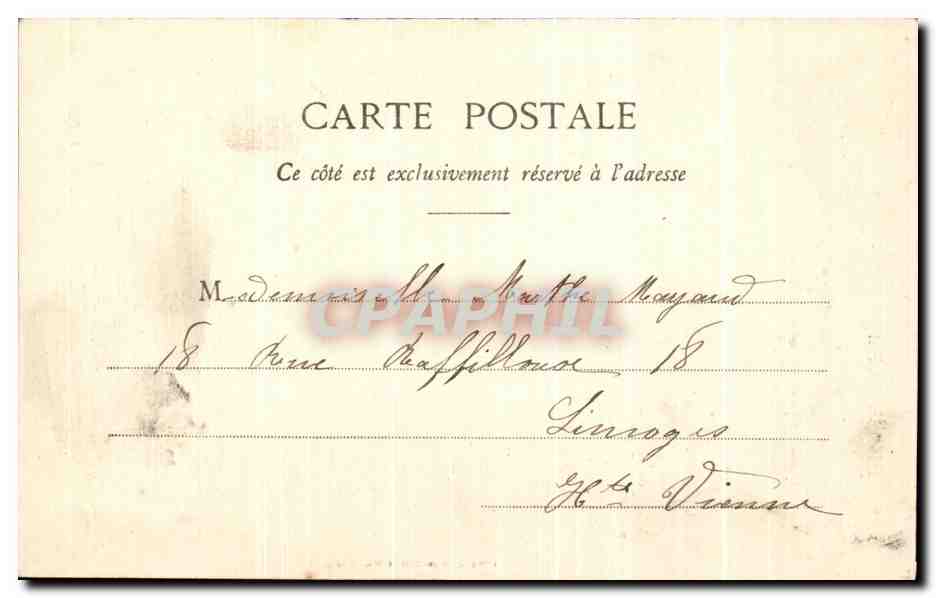 CARTE POSTALE
Ce côté est exclusivement réservé à l'adresse
Mademoiselle Marthe Mayaud
CPAPHIL
18 Rue Raffilloux 18
Limoges
Hte Vienne